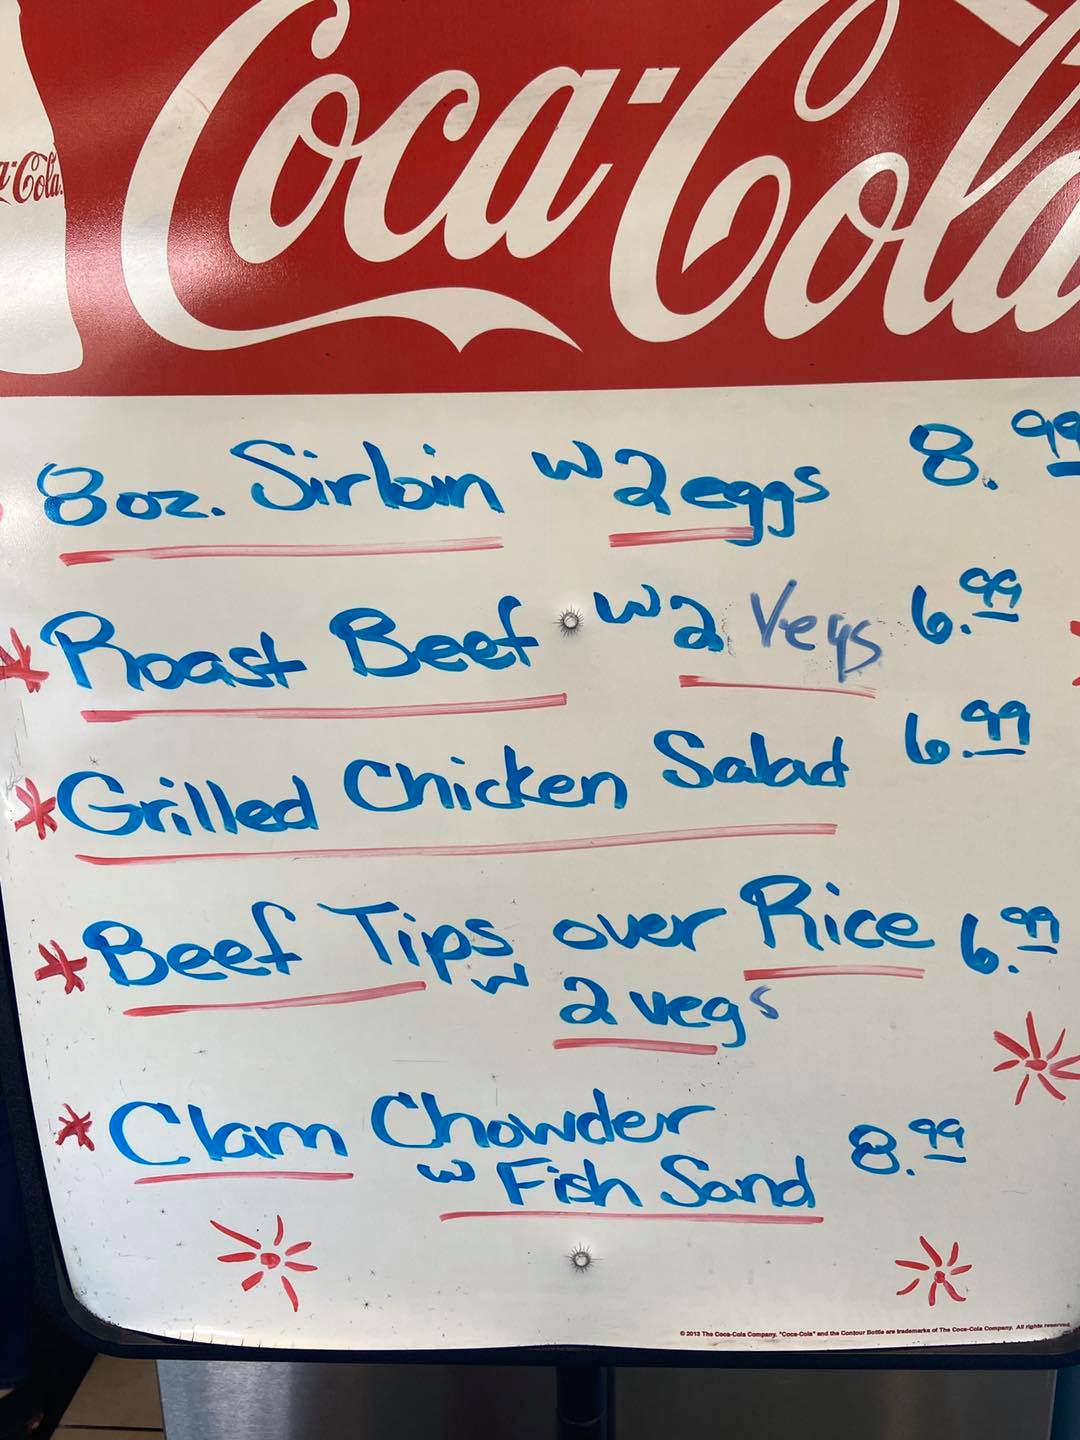 Coca-Cola
a-Cola
8oz. Sirloin w 2 eggs 8.99
Roast Beef w 2 Vegs 6.99
Grilled Chicken Salad 6.99
Beef Tips over Rice 6.99
w 2 vegs
Clam Chowder
w Fish Sand 8.99
© 2013 The Coca-Cola Company. "Coca-Cola" and the Contour Bottle are trademarks of The Coca-Cola Company. All rights reserved.